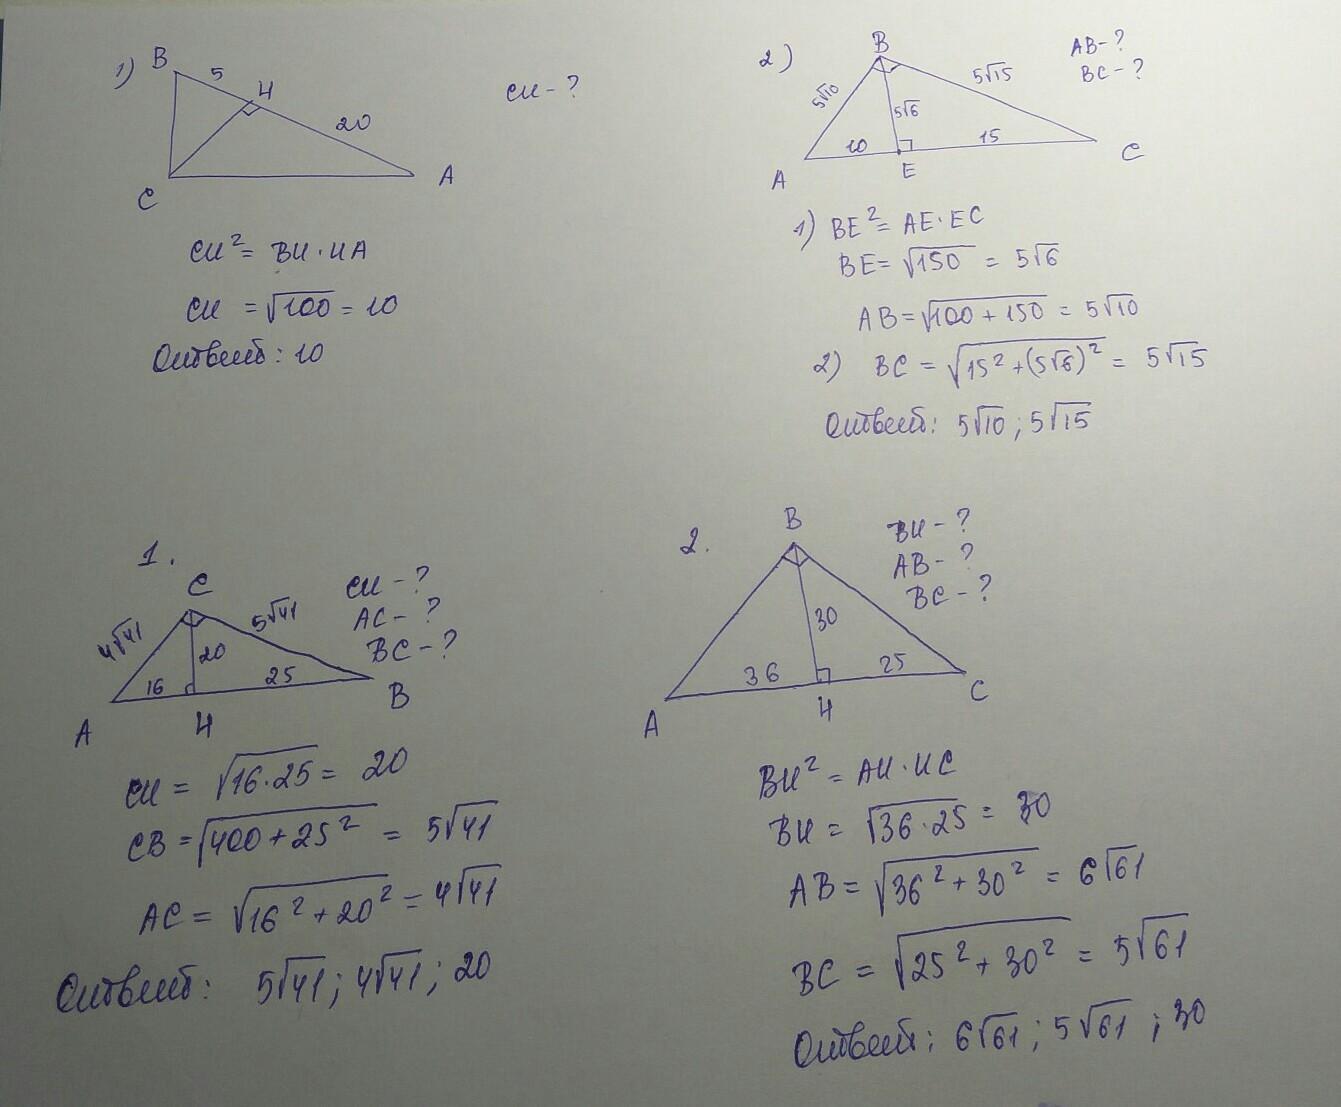 1)
B
5
H
20
C
A
CH - ?
CH² = BH · HA
CH = √100 = 10
Ответ: 10
2)
B
5√10
5√6
5√15
10
15
A
E
C
AB - ?
BC - ?
1) BE² = AE · EC
BE = √150 = 5√6
AB = √100 + 150 = 5√10
2) BC = √15² + (5√6)² = 5√15
Ответ: 5√10 ; 5√15
1.
C
4√41
5√41
20
16
25
A
H
B
CH - ?
AC - ?
BC - ?
CH = √16·25 = 20
CB = √400 + 25² = 5√41
AC = √16² + 20² = 4√41
Ответ: 5√41 ; 4√41 ; 20
2.
B
30
36
25
A
H
C
BH - ?
AB - ?
BC - ?
BH² = AH · HC
BH = √36·25 = 30
AB = √36² + 30² = 6√61
BC = √25² + 30² = 5√61
Ответ: 6√61 ; 5√61 ; 30